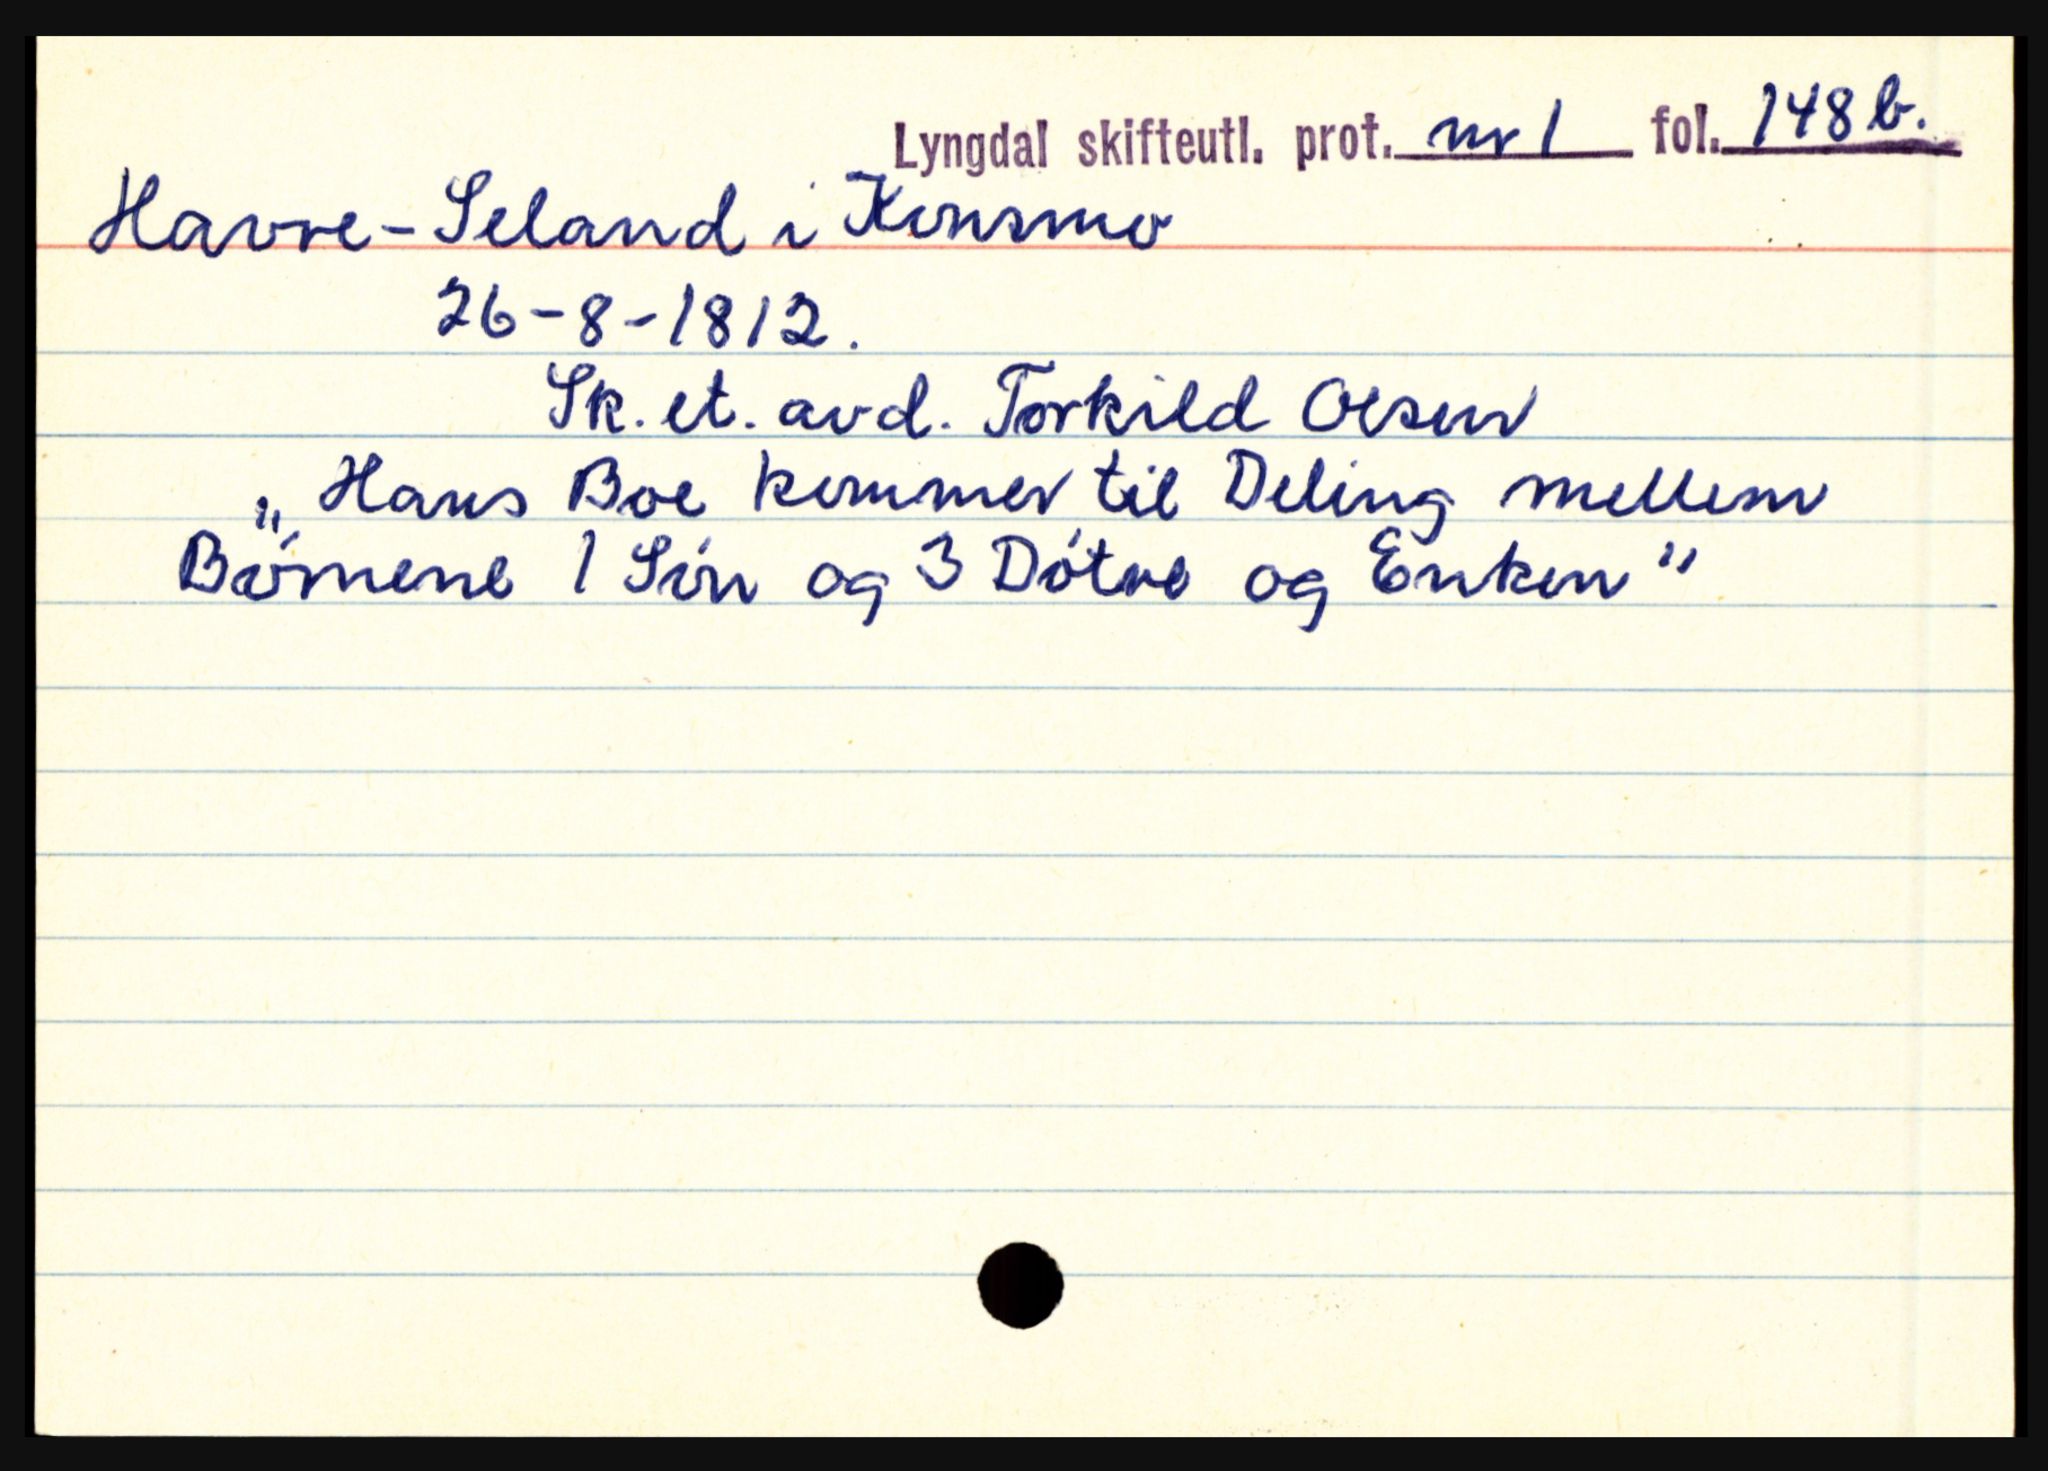 Lyngdal skifteutl. prot. nr 1 fol. 148 b.
Havre-Seland i Konsmo
26-8-1812.
Sk. et. avd. Torkild Olsen
„Hans Boe kommer til Deling mellem
Børnene 1 Søn og 3 Døtre og Enken"